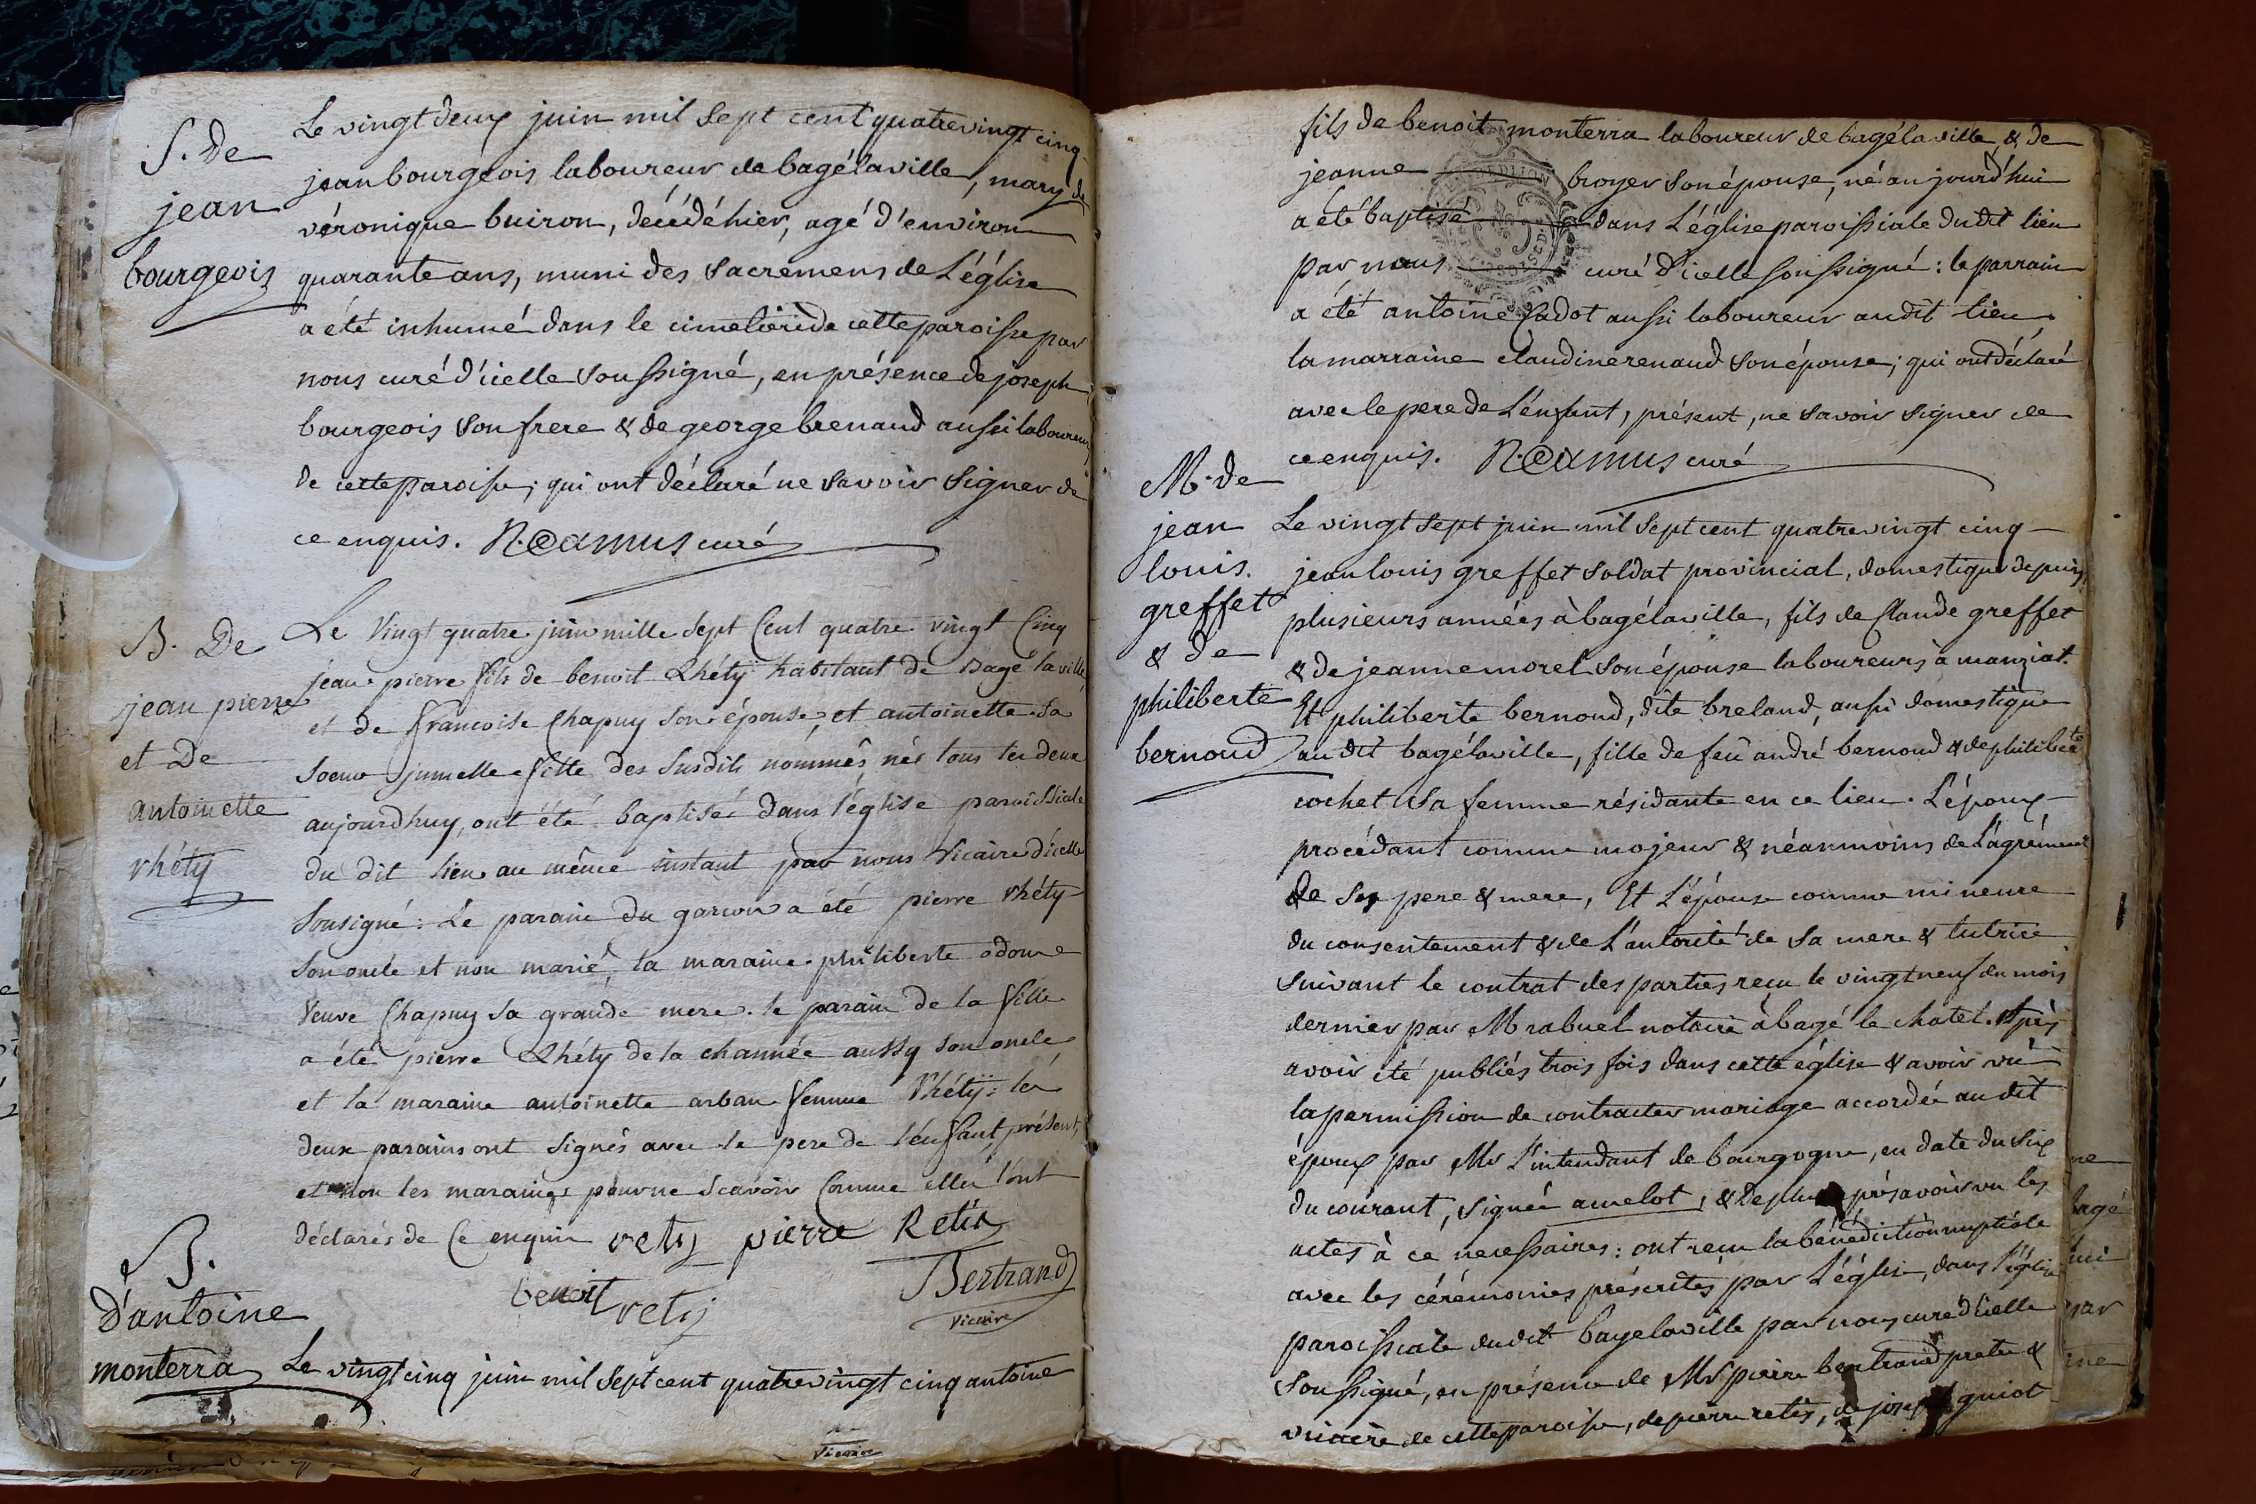 S. de
jean
bourgeois
Le vingt deux juin mil sept cent quatrevingt cinq
jean bourgeois laboureur de bagélaville, mary de
véronique buiron, décédé hier, agé d'environ
quarante ans, muni des sacremens de L'église
a été inhumé dans le cimetière de cette paroisse par
nous curé d'icelle soussigné, en présence de joseph
bourgeois son frere & de george brenaud aussi laboureur
de cette paroisse; qui ont déclaré ne savoir signer de
ce enquis. N. camus curé
B. De
jean pierre
et De
antoinette
rhéty
Le Vingt quatre juin mille sept Cent quatre vingt Cinq
jean pierre fils de benoit Rhéty habitant de Bagé la ville,
et de francoise Chapuy son épouse, et antoinette sa
soeur jumelle fille des susdits nommés nés tous les deux
aujourdhuy, ont été baptisés dans l'église paroissiale
du dit lieu au même instant par nous Vicaire d'icelle
sousigné: Le parain du garcon a été pierre rhéty
son oncle et non marié, la maraine philiberte odome
Veuve Chapuy sa grande mere. le parain de la fille
a été pierre Rhéty de la channée aussy son oncle
et la maraine antoinette arban femme Rhéty: les
deux parains ont signés avec le pere de l'enfant présent,
et non les maraines pour ne scavoir Comme elles l'ont
déclarés de Ce enquis rety pierre Retis
benoit rety Bertrand
vicaire
B.
d'antoine
monterra
Le vingt cinq juin mil sept cent quatrevingt cinq antoine
vicaire
fils de benoit monterra laboureur de bagélaville & de
jeanne broyer son épouse, né aujourd'hui
a été baptisé dans L'église paroissiale dudit lieu
par nous curé d'icelle soussigné: le parrain
a été antoine sadot aussi laboureur audit lieu.
la marraine claudine renaud son épouse; qui ont déclaré
avec le pere de L'enfant, présent, ne savoir signer de
ce enquis. N. camus curé
M. de
jean
louis.
greffet
& de
philiberte
bernoud
Le vingt sept juin mil sept cent quatrevingt cinq
jean louis greffet soldat provincial, domestique depuis
plusieurs années à bagélaville, fils de Claude greffet
& de jeanne morel son épouse laboureurs à manziat.
Et philiberte bernoud, dite breland, aussi domestique
audit bagélaville, fille de feu andré bernoud & de philiberte
cochet sa femme résidante en ce lieu. L'époux
procédant comme majeur & néanmoins de L'agrément
de ses pere & mere, Et L'épouse comme mineure
du consentement & de L'autorité de sa mere & tutrice
suivant le contrat des parties reçu le vingtneuf du mois
dernier par M rabuel notaire à bagé le chatel. Après
avoir été publiés trois fois dans cette église & avoir vu
la permission de contracter mariage accordée audit
époux par Mr L'intendant de bourgogne, en date du six
du courant, signée amelot, & de plus après avoir vu les
actes à ce necessaires: ont reçu la bénédiction nuptiale
avec les cérémonies préscrites par L'église, dans l'église
paroissiale dudit bagelaville par nous curé d'icelle
soussigné, en présence de Mr pierre bertrand pretre &
vicaire de cette paroisse, de pierre retis, de joseph guiot